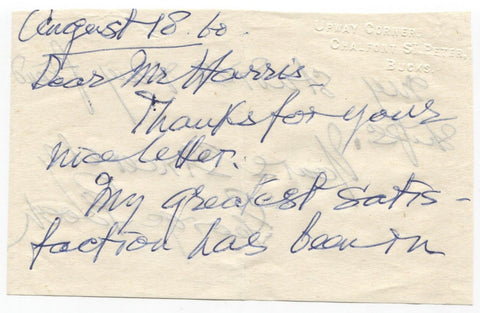 August 18. 60.
UPWAY CORNER,
CHALFONT ST PETER,
BUCKS.
Dear Mr Harris,
Thanks for your
nice letter.
My greatest satis-
faction has been in